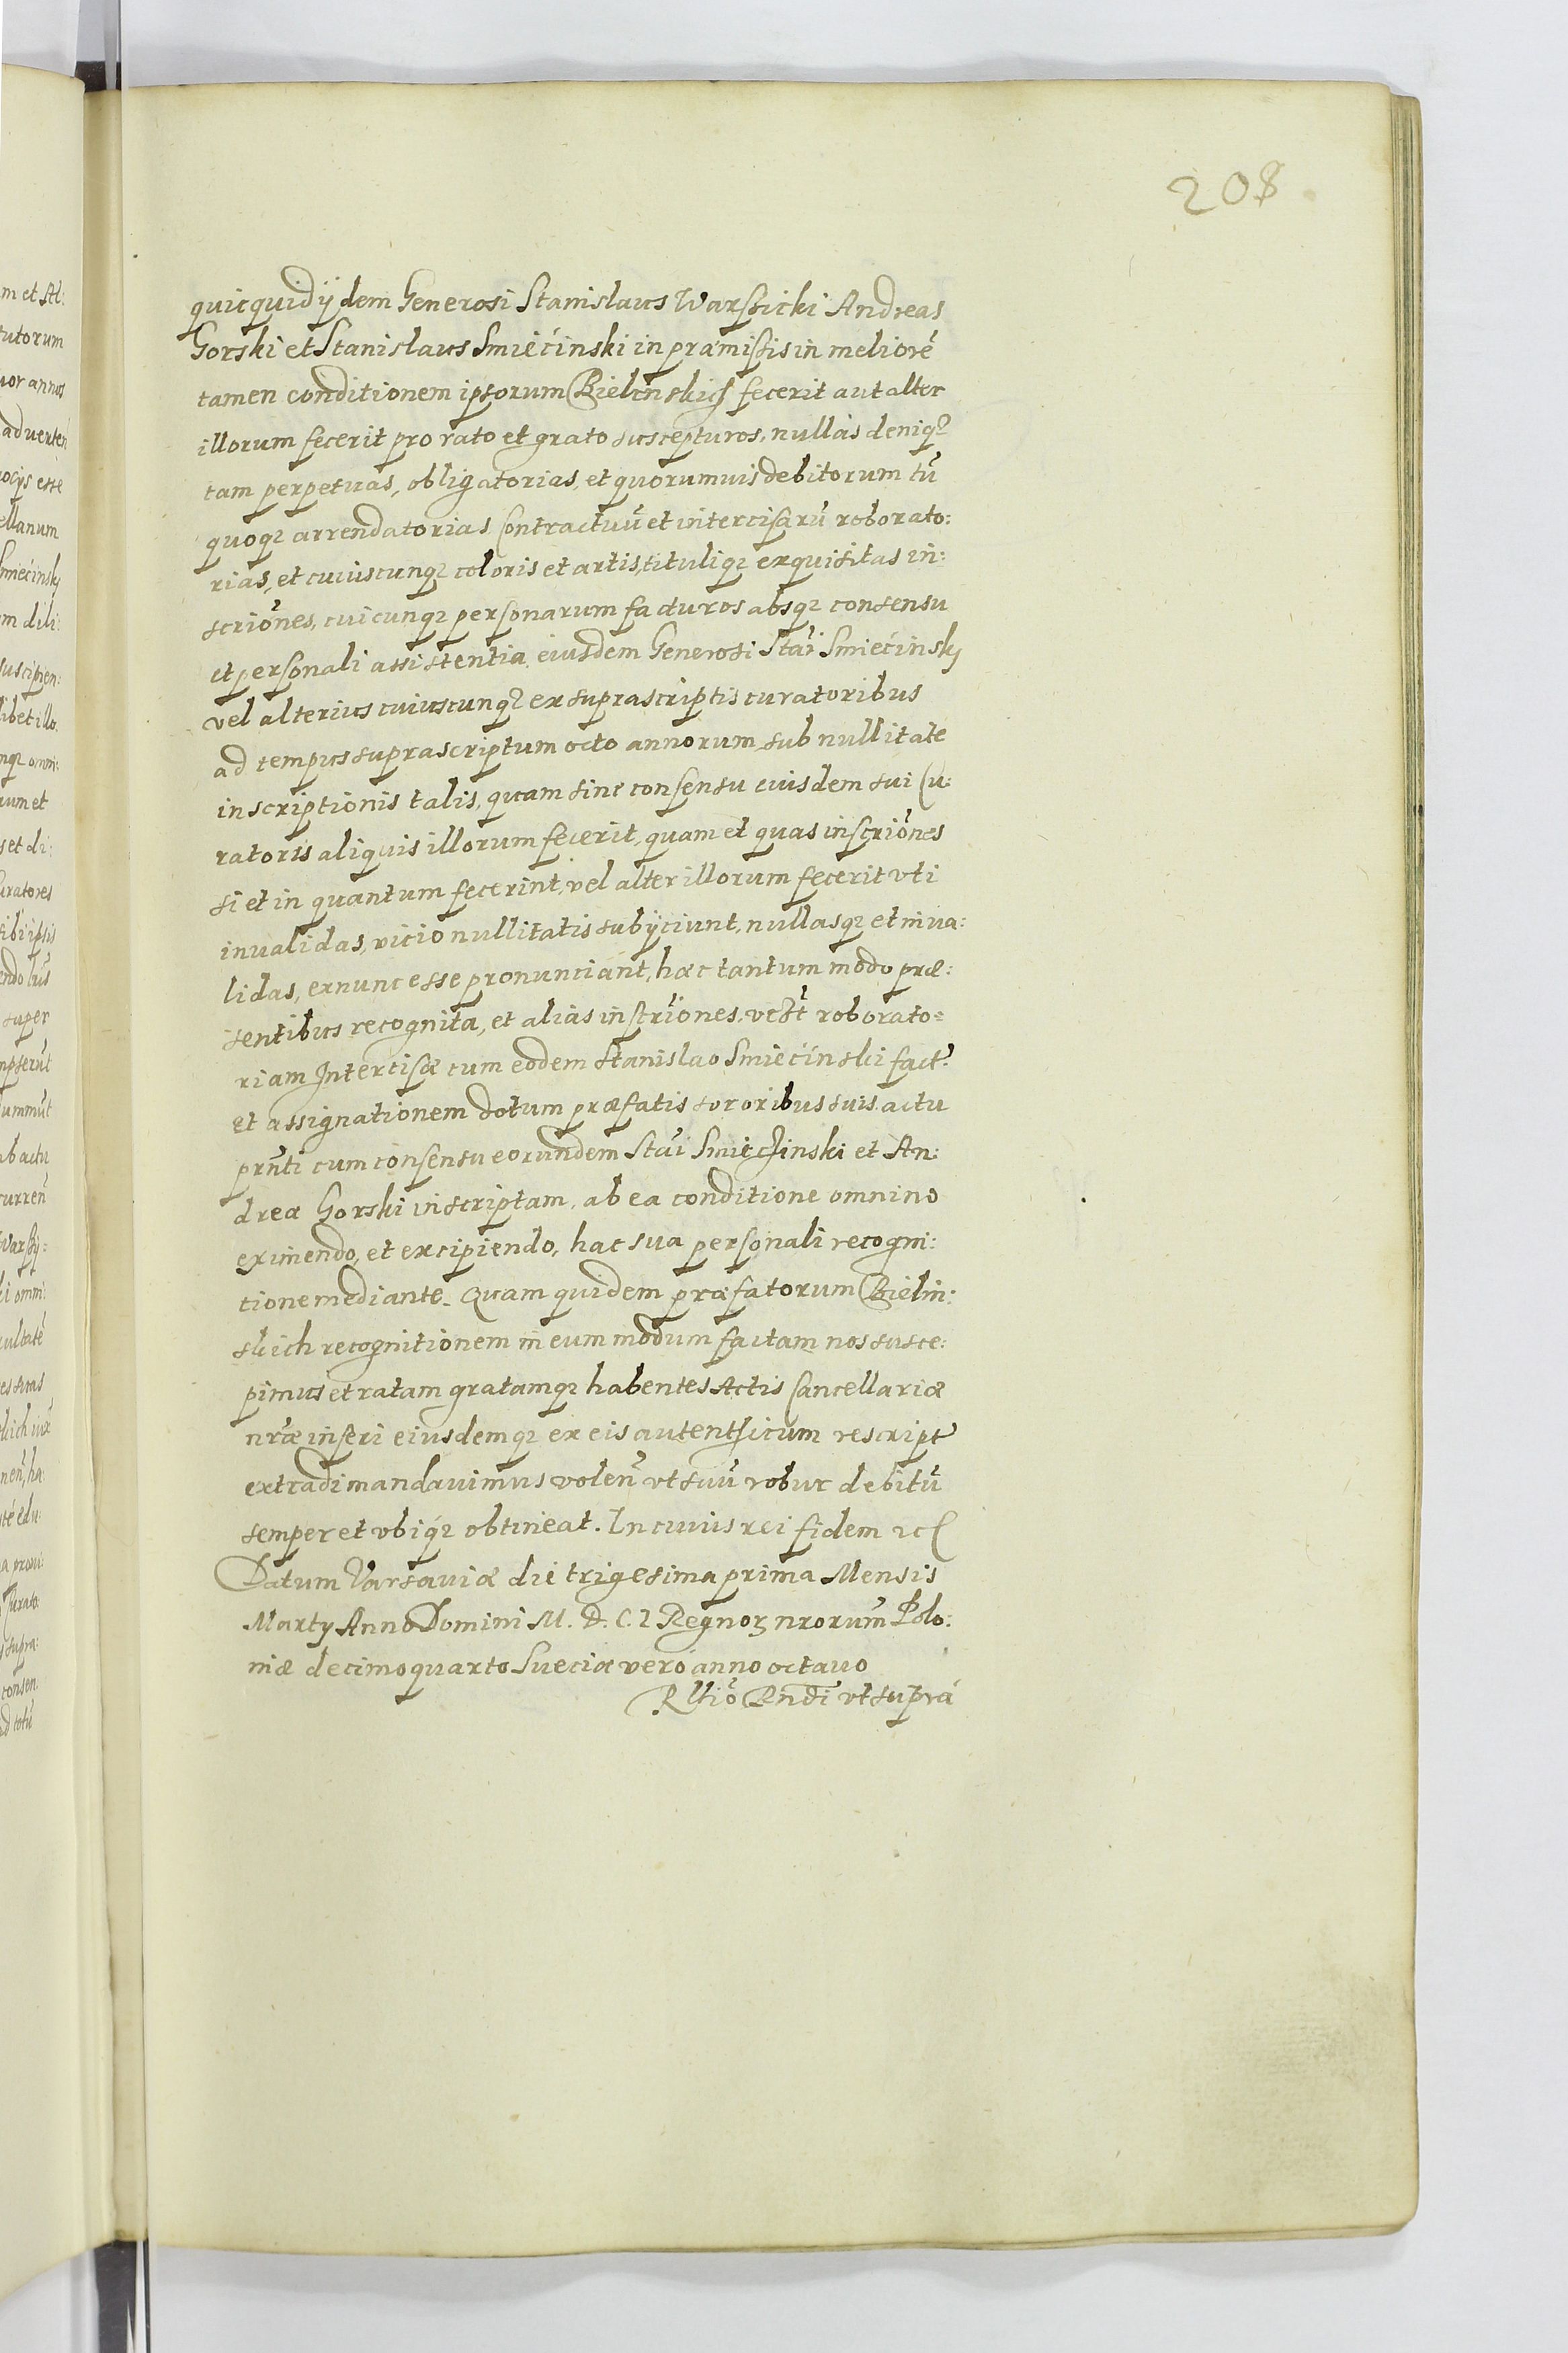 208
quicquid ijdem Generosi Stanislaus Warssicki Andreas
Gorski et Stanislaus Smiećinski in præmissis in meliorē
tamen conditionem ipsorum Bielinskich fecerit aut alter
illorum fecerit pro rato et grato suscepturos, nullas deniqꝫ
tam perpetuas, obligatorias, et quorumuis debitorum tū
quoqꝫ arrendatorias Contractuū et intercisarū roborato:
rias, et cuiuscunqꝫ coloris et artis, tituliqꝫ exquisitas in:
scriōnes, cuicunqꝫ personarum facturos absqꝫ consensu
et personali assistentia eiusdem Generosi Stāi Smiećinsky
vel alterius cuiuscunqꝫ ex suprascriptis curatoribus
ad tempus suprascriptum octo annorum, sub nullitate
inscriptionis talis, quam sine consensu euisdem sui Cu:
ratoris aliquis illorum fecerit, quam et quas inscriōnes
si et in quantum fecerint, vel alter illorum fecerit vti
inualidas, vicio nullitatis subijciunt, nullasqꝫ et inua:
lidas, exnunc esse pronunciant, hac tantum modo præ:
sentibus recognita, et alias inscriōnes, vczt roborato=
riam Intercisæ cum eodem Stanislao Smiećinski fact
et assignationem dotum præfatis sororibus suis actu
prnti cum consensu eorundem Stāi Smiechinski et An:
drea Gorski inscriptam, ab ea conditione omnino
eximendo, et excipiendo, hac sua personali recogni:
tione mediante. Quam quidem præfatorum Bielin:
skich recognitionem in eum modum factam nos susce:
pimus et ratam gratamqꝫ habentes Actis Cancellariæ
nræ inseri eiusdemqꝫ ex eis autenthicum rescript
extradi mandauimus volen vt suū robur debitū
semper et vbiqꝫ obtineat. In cuius rei fidem ꝛc
Datum Varsauiæ die trigesima prima Mensis
Martij Anno Domini M. D. C. I Regnoꝝ nrorum Polo:
niæ decimoquarto Sueciæ vero anno octauo
Rltiō Rndi vt supra
m et Al:
tutorum
uor annos
aduerten
ocijs esse
ellanum
Smiećinsky
m dili:
suscipien:
libet illo.
nqꝫ omni:
um et
s et di:
uratores
sibi ipsis
super
ummūt
ab actu
curren